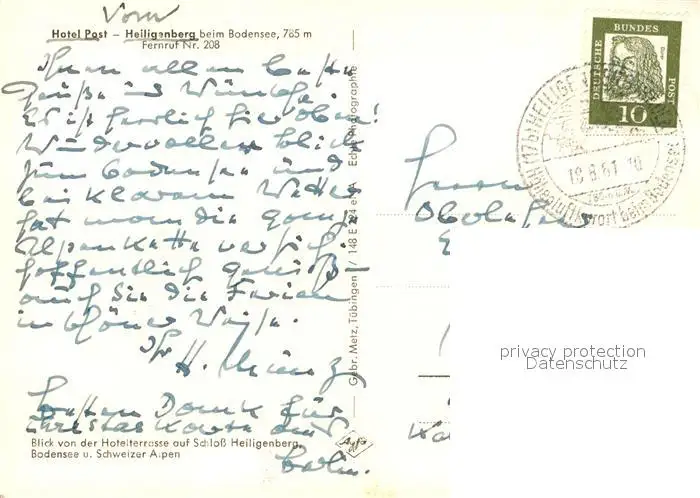 Vom
Hotel Post – Heiligenberg beim Bodensee, 785 m
Fernruf Nr. 208
Ihnen allen beste
Grüße und Wünsche.
Es ist herrlich hier oben!
Wundervoller Blick
zum Bodensee und
bei klarem Wetter
hat man die ganze
Alpenkette vor sich.
Hoffentlich genießen
auch Sie die Ferien
in schöner Weise.
Ihr H.
Besten Dank für
Ihre Karte aus
Blick von der Hotelterrasse auf Schloß Heiligenberg,
Bodensee u. Schweizer Alpen
Gebr. Metz, Tübingen / 148 E
Echte Photographie
Agfa
DEUTSCHE BUNDES POST
10
(17b) HEILIGENBERG
18.8.61
Höhenluftkurort beim Bodensee
Herrn
privacy protection
Datenschutz